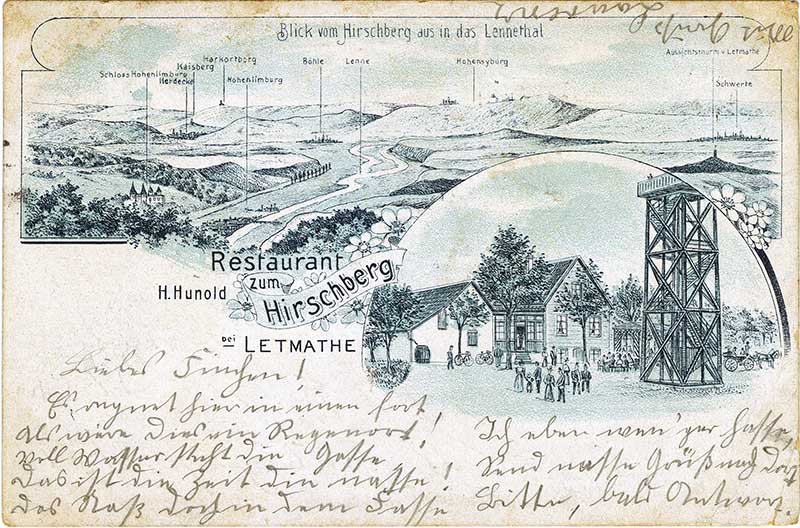 Blick vom Hirschberg aus in das Lennethal
Schloss Hohenlimburg
Herdecke
Kaisberg
Harkortberg
Hohenlimburg
Böhle
Lenne
Hohensyburg
Aussichtsthurm v Letmathe
Schwerte
Restaurant
zum
Hirschberg
H. Hunold
bei LETMATHE
Liebes Finchen!
Es regnet hier in einem fort,
Als wäre dies ein Regenort!
Voll Wasser steht die Gasse
Das ist die Zeit die nasse!
Das Naß doch in dem Fasse
Ich eben wen'ger hasse,
Send nasse Grüß nach dort
Bitte, bald Antwort.